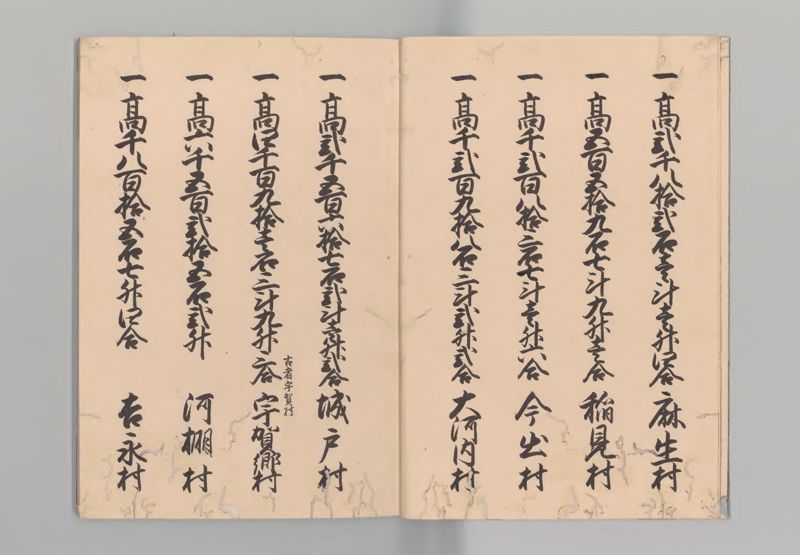 一高弐千八拾弐石壱斗壱升四合 麻生村
一高五百五拾九石七斗九升壱合 稲見村
一高千弐百八拾二石七斗壱升六合 今出村
一高千弐百九拾八石三斗弐升弐合 大河内村
一高弐千五百六拾七石弐斗壱升弐合 城戸村
古者宇賀村
一高四千百九拾壱石三斗九升二合 宇賀郷村
一高六千五百弐拾五石弐升 河棚村
一高千八百拾五石七升四合 吉永村